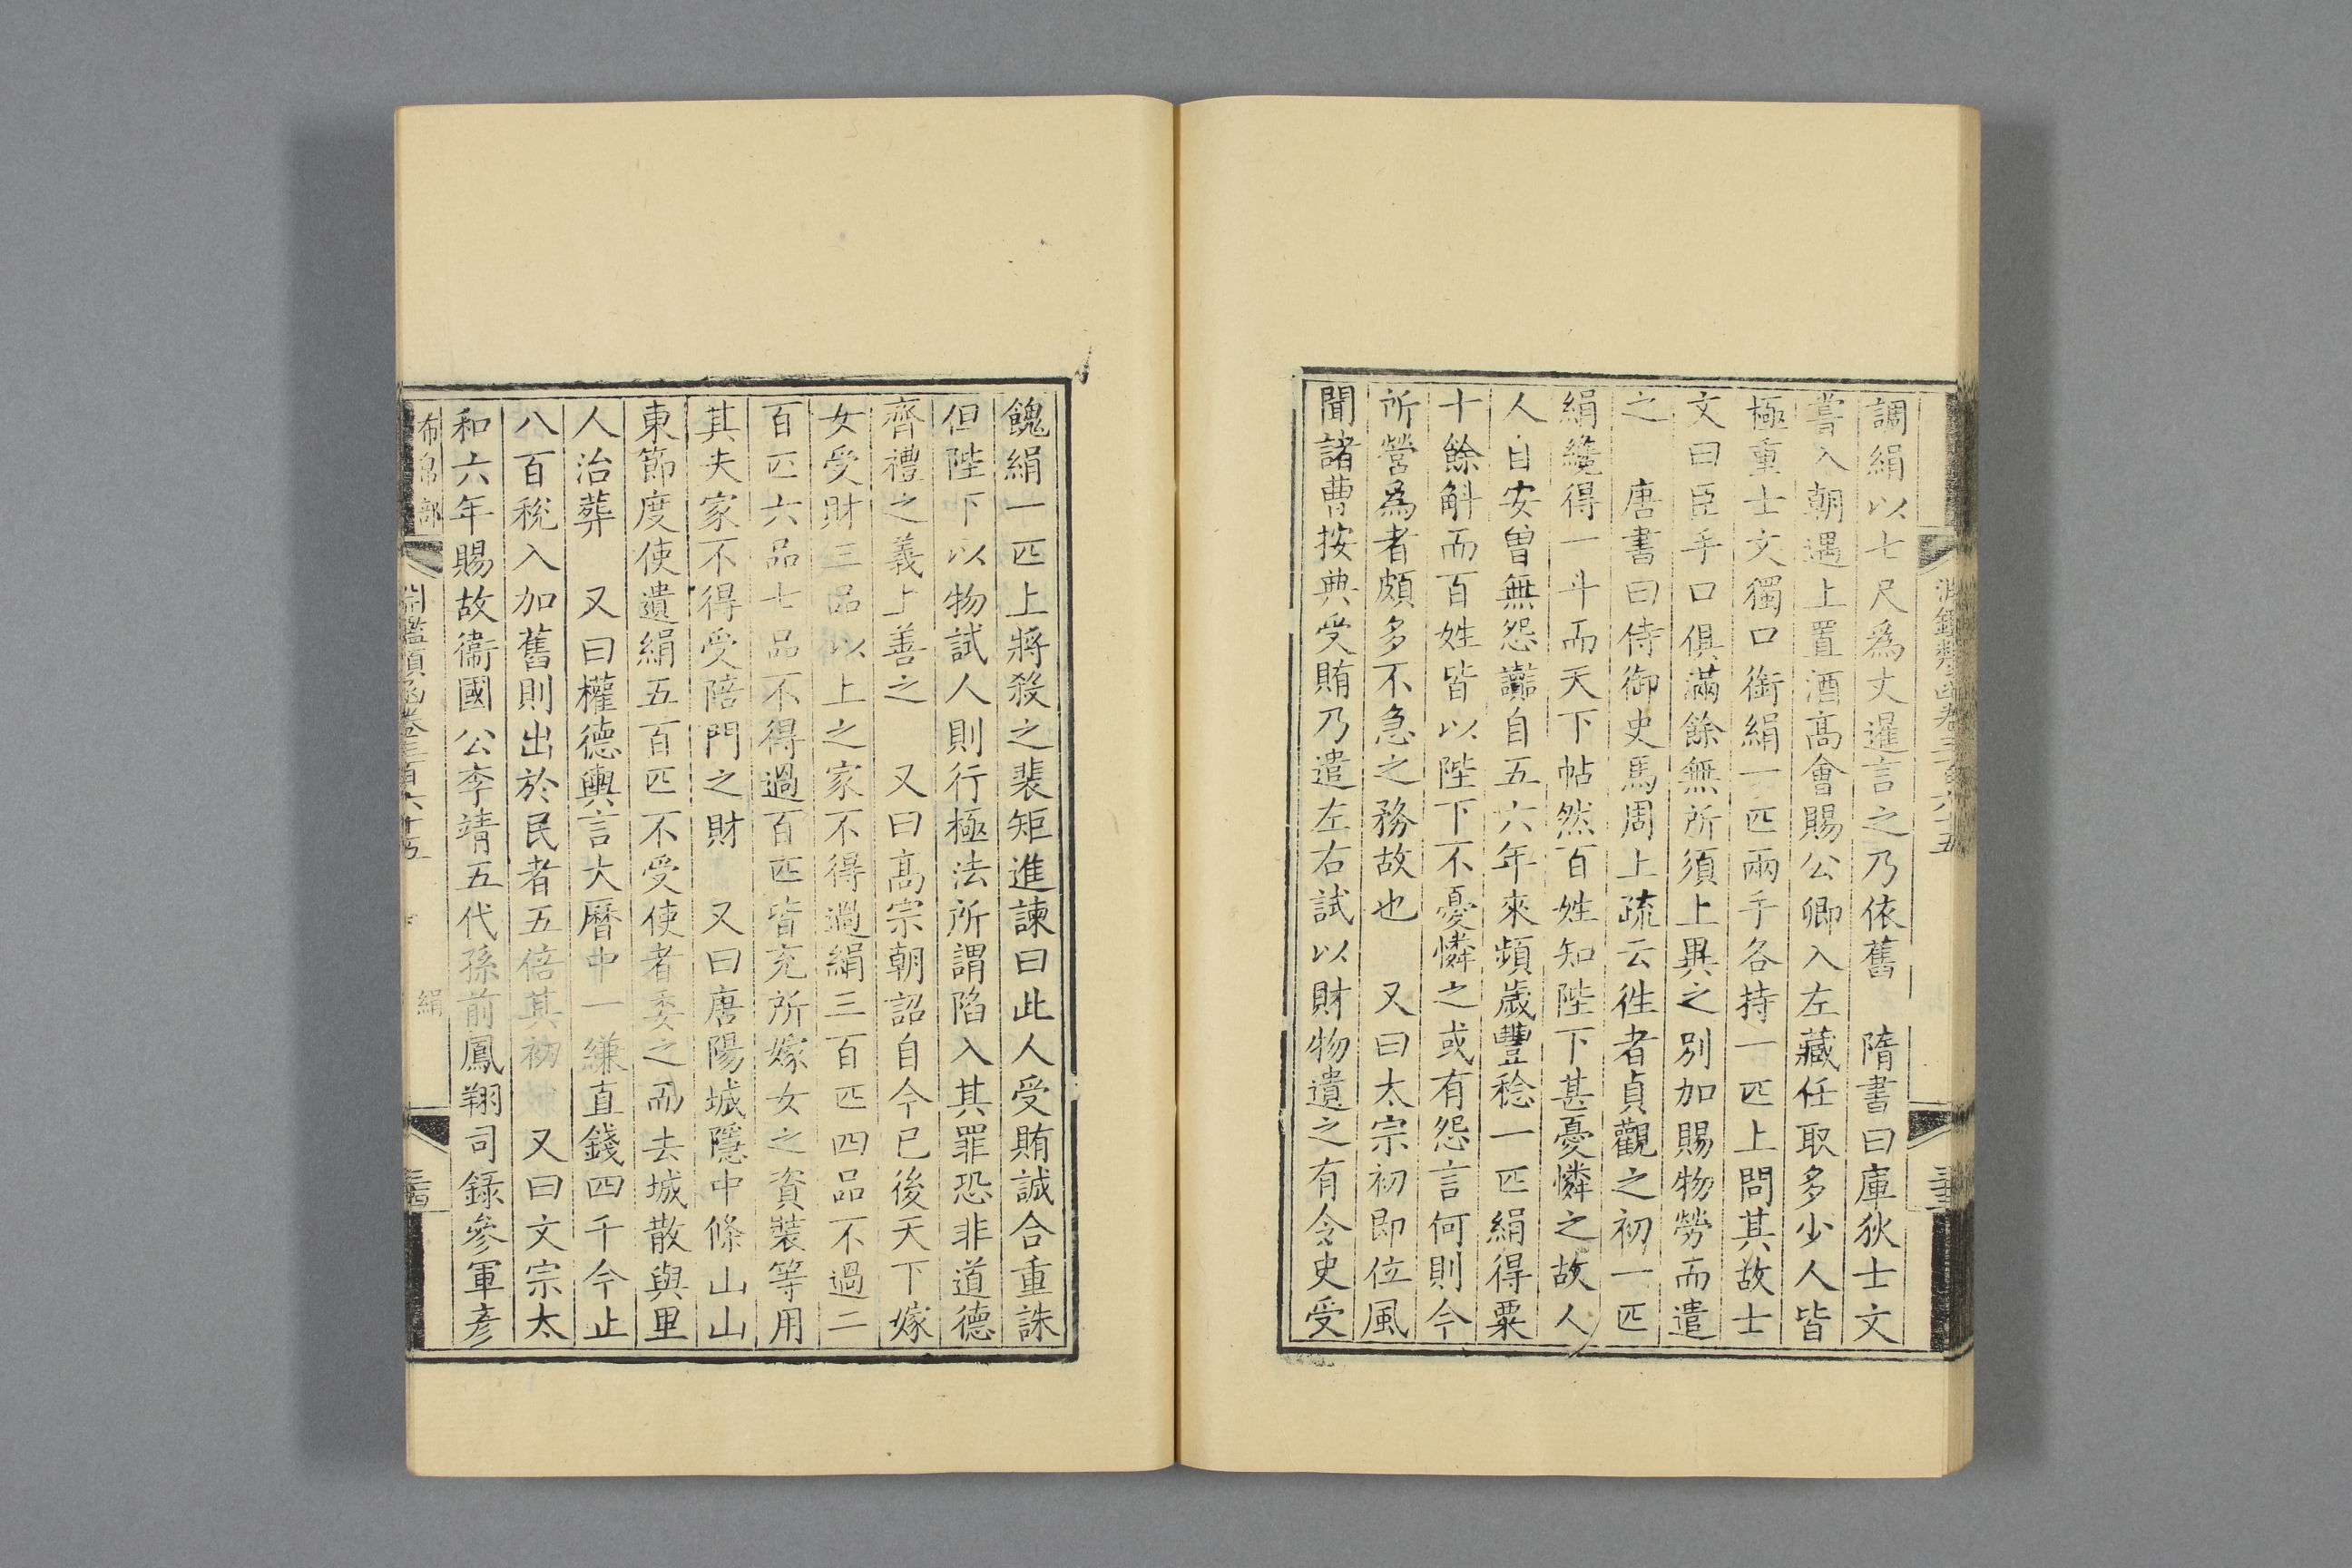 淵鑑類函卷三百六十五
調絹以七尺為丈暹言之乃依舊　隋書曰庫狄士文
嘗入朝遇上置酒高會賜公卿入左藏任取多少人皆
極重士文獨口銜絹一匹兩手各持一匹上問其故士
文曰臣手口俱滿餘無所須上異之別加賜物勞而遣
之　唐書曰侍御史馬周上疏云徃者貞觀之初一匹
絹纔得一斗而天下帖然百姓知陛下甚憂憐之故人
人自安曾無怨讟自五六年來頻歲豐稔一匹絹得粟
十餘斛而百姓皆以陛下不憂憐之或有怨言何則今
所營為者頗多不急之務故也　又曰太宗初即位風
聞諸曹按典受賄乃遣左右試以財物遺之有令史受
餽絹一匹上將殺之裴矩進諫曰此人受賄誠合重誅
但陛下以物試人則行極法所謂陷入其罪恐非道德
齊禮之義上善之　又曰高宗朝詔自今已後天下嫁
女受財三品以上之家不得過絹三百匹四品不過二
百匹六品七品不得過百匹皆充所嫁女之資裝等用
其夫家不得受陪門之財　又曰唐陽城隱中條山山
東節度使遺絹五百匹不受使者委之而去城散與里
人治葬　又曰權德輿言大曆中一縑直錢四千今止
八百稅入加舊則出於民者五倍其初　又曰文宗太
和六年賜故衞國公李靖五代孫前鳳翔司錄參軍彥
布帛部　淵鑑類函卷三百六十五　絹